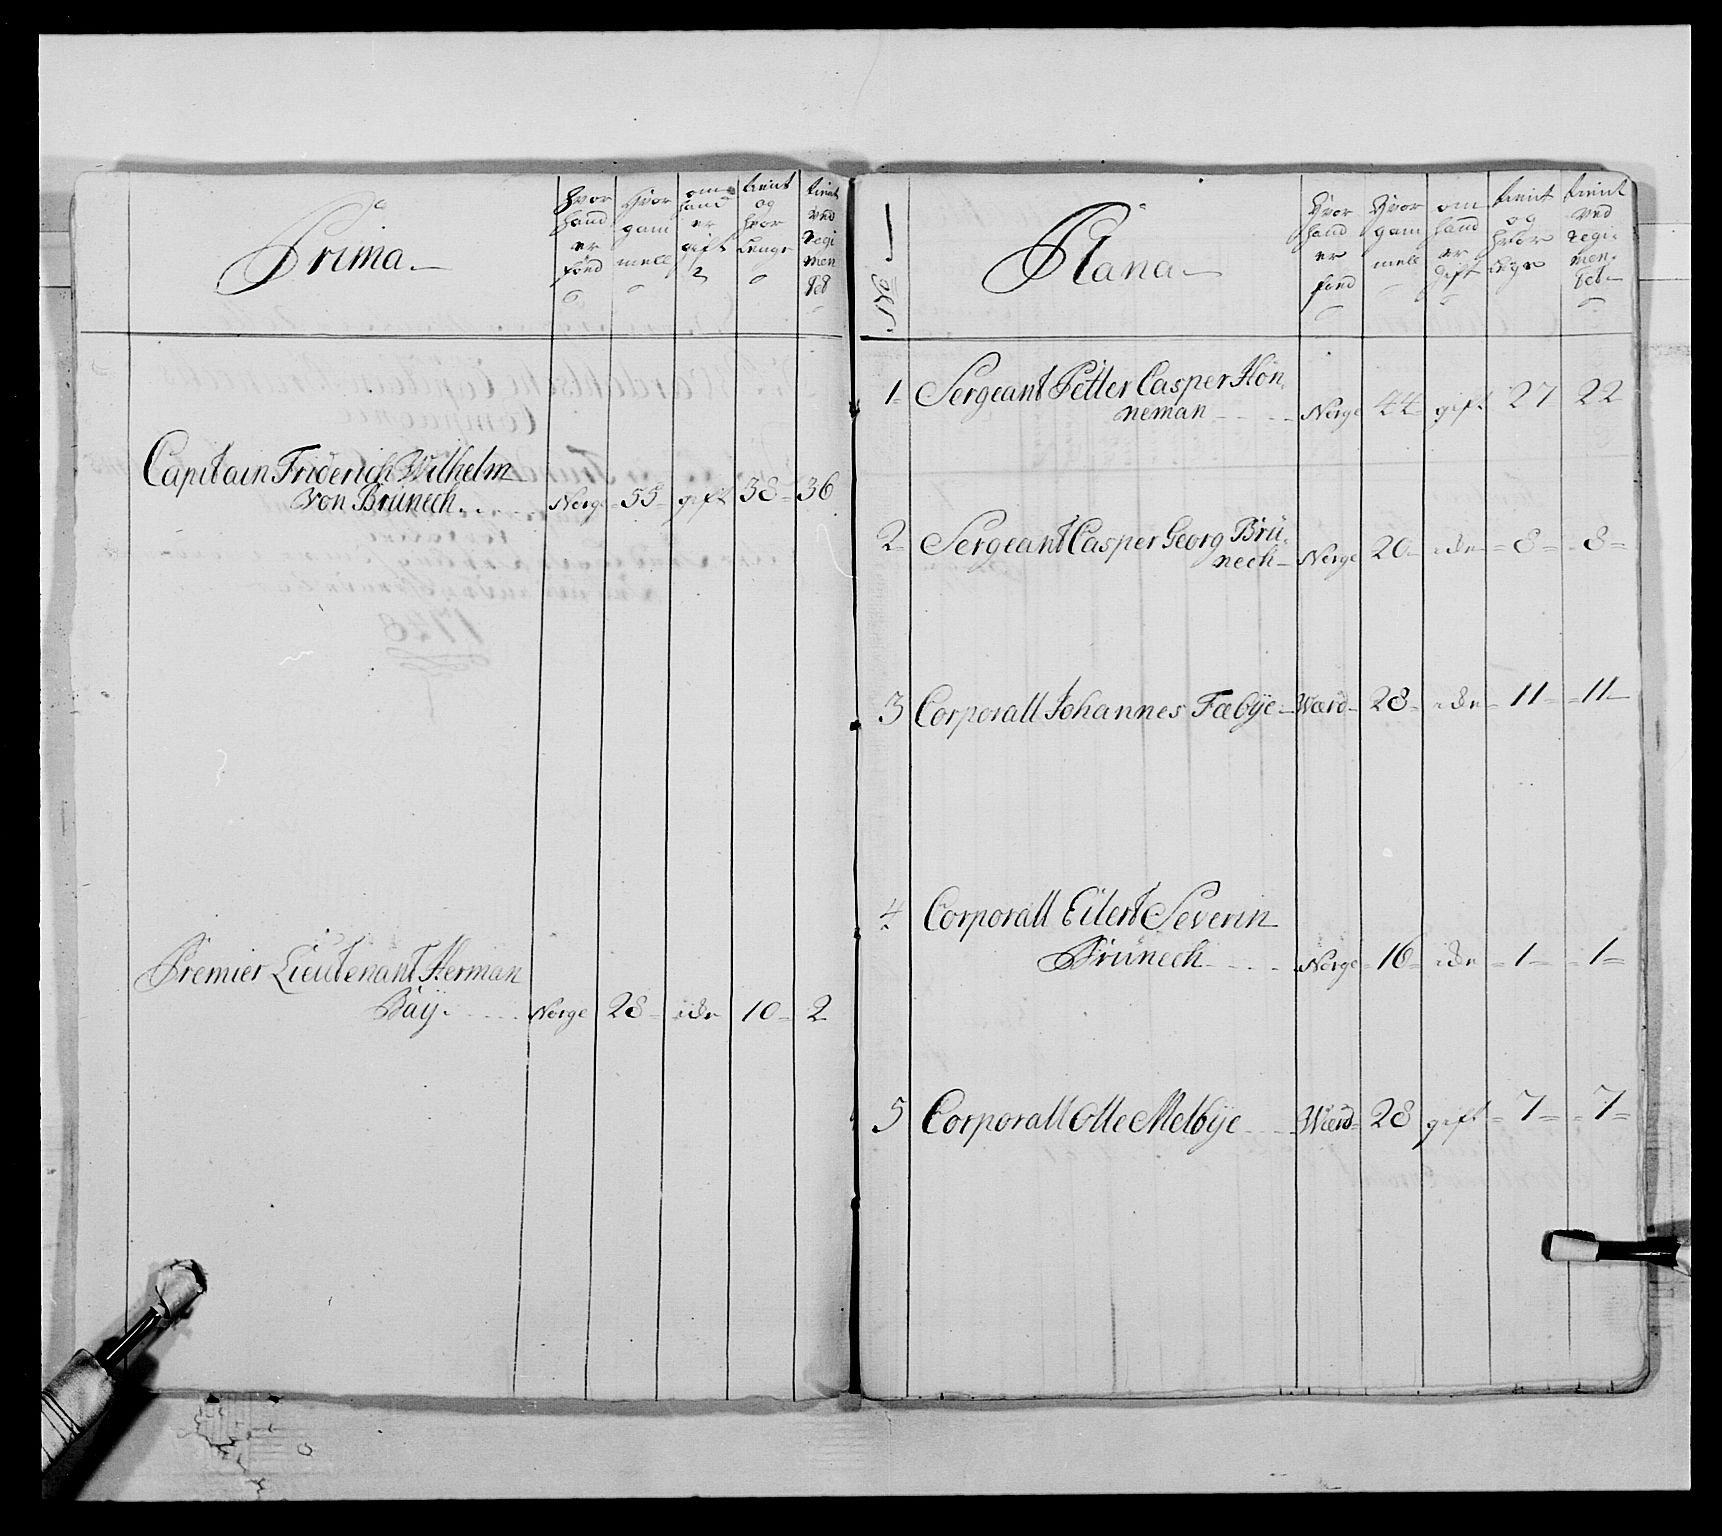 Prima
Hvor
hand
er
fød
Hvor
gam
mell
om
hand
er
gift
tient
og
hvor
Lenge
tient
ved
Regi
men
tet
Capitain Friderich Wilhelm
von Brünech. Norge 55 gift 38 36
Premier Lieutenant Herman
Baÿ. Norge 28 ide 10 2
No
Plana
Hvor
hand
er
fød
Hvor
gam
mell
om
hand
er
gift
tient
og
hvor
tient
ved
Regi
men
tet
1 Sergeant Petter Casper Hön
neman Norge 44 gift 27 22
2 Sergeant Casper Georg Brü
nech Norge 20 ide 8 8
3 Corporall Johannes Fæbÿe Værd 28 ide 11 11
4 Corporall Eilert Severin
Brünech Norge 16 ide 1 1
5 Corporall Olle Melbÿe Værd 28 gift 7 7